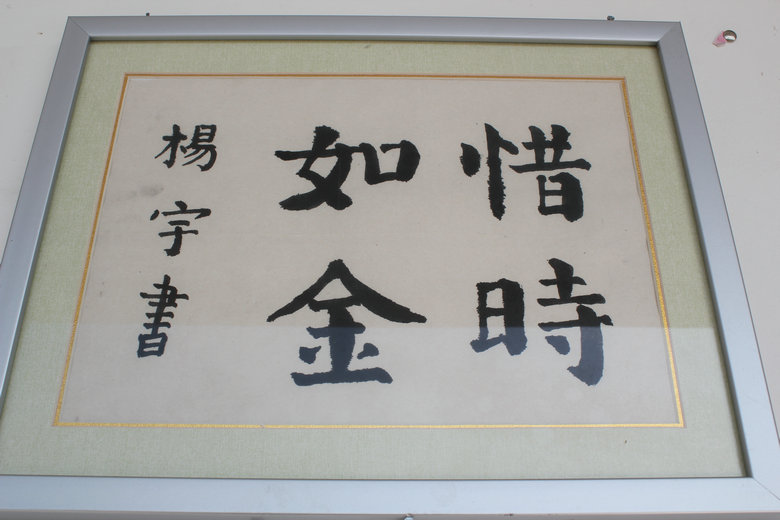 惜時
如金
楊宇書